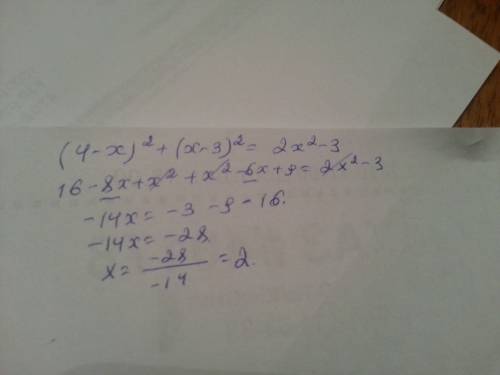 (4-x)² + (x-3)² = 2x² - 3
16 - 8x + x² + x² - 6x + 9 = 2x² - 3
-14x = -3 - 9 - 16.
-14x = -28.
x = -28/-14 = 2.